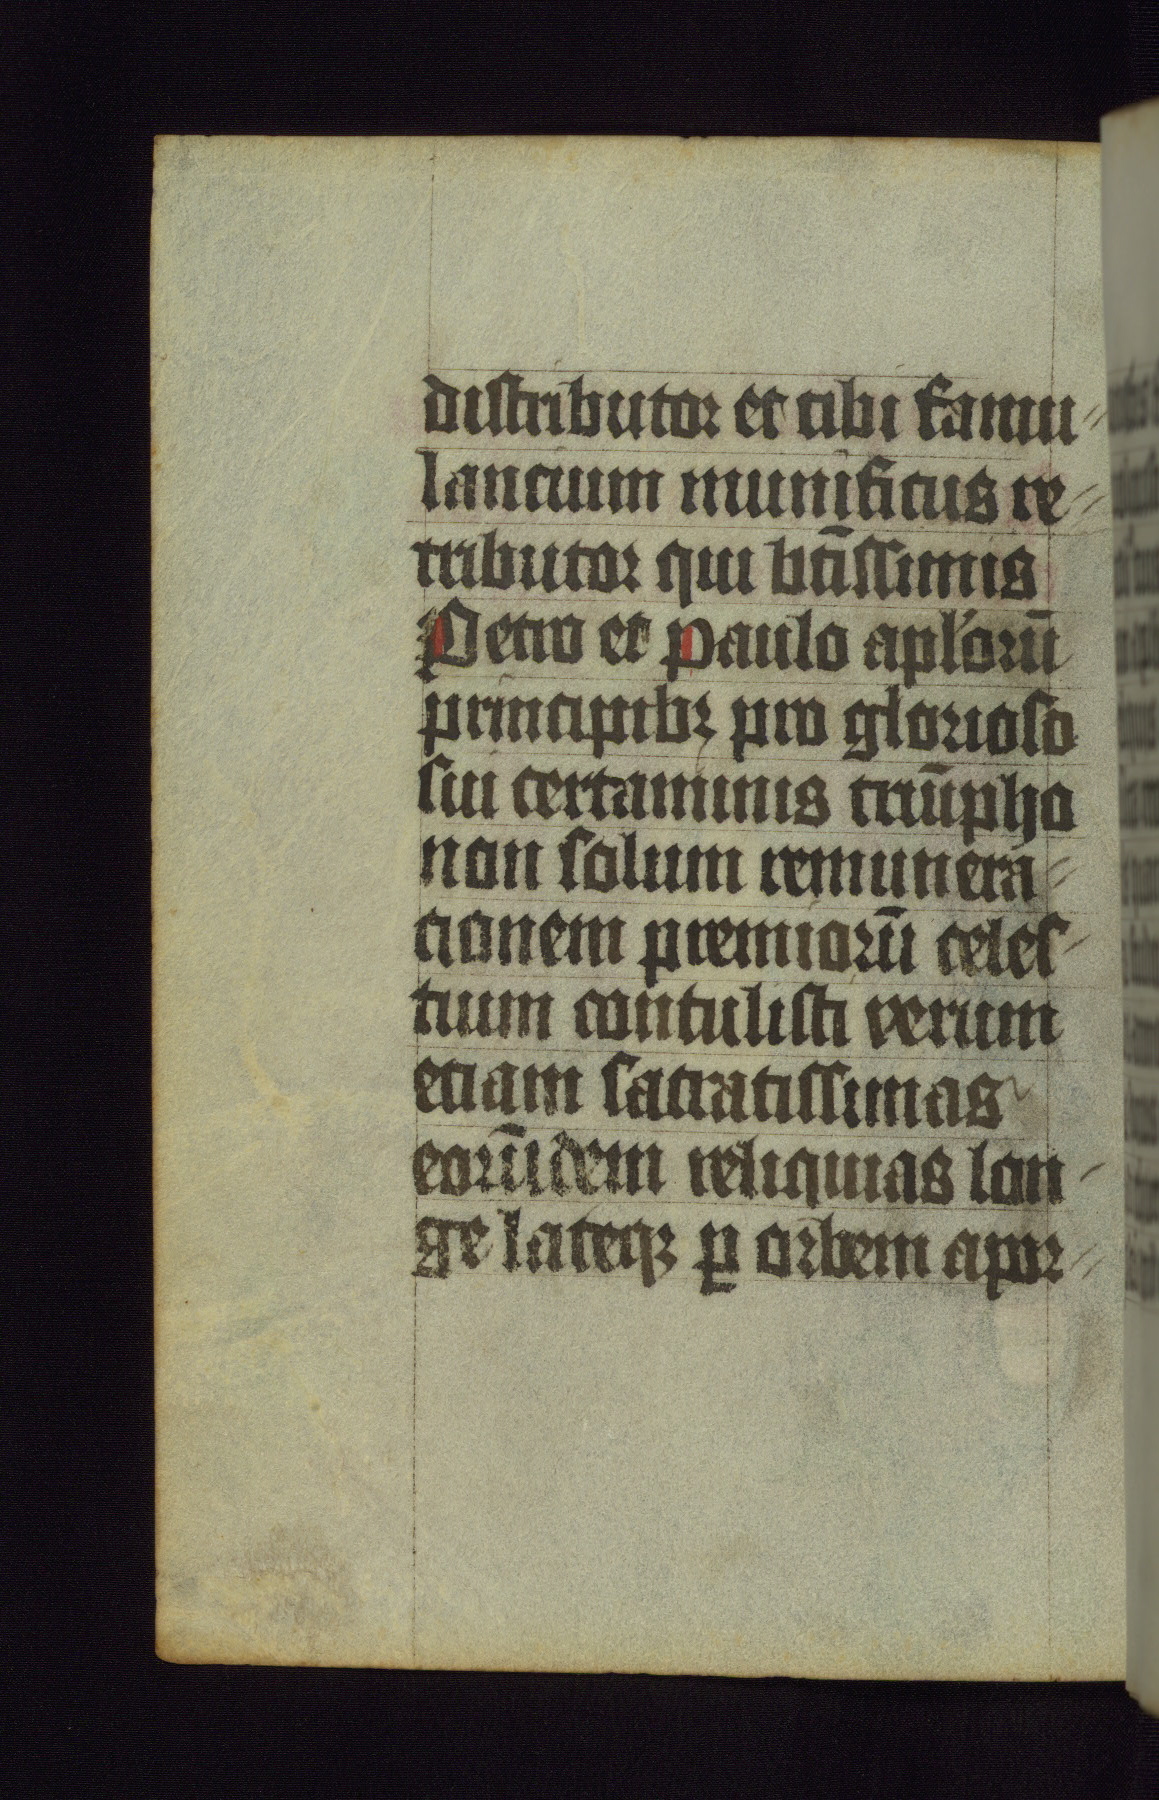 distributor et tibi famu⸗
lancium munificus re⸗
tributor qui bt̄issimis
Petro et paulo apl'orū
principibꝫ pro glorioso
sui certaminis triūpho
non solum remunera⸗
cionem premiorū celes⸗
tium contulisti verum
etiam sacratissimas
eorūdem reliquias lon⸗
ge lateqꝫ ꝑ orbem apor⸗